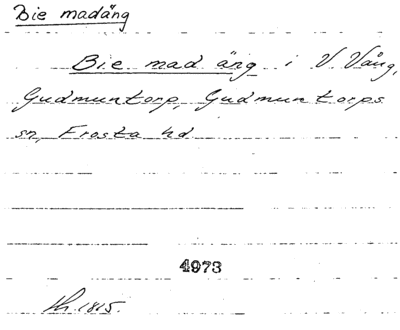 Bie madäng
Bie mad äng i V. Vång,
Gudmuntorp, Gudmuntorps
sn, Frosta hd
4973
1815.